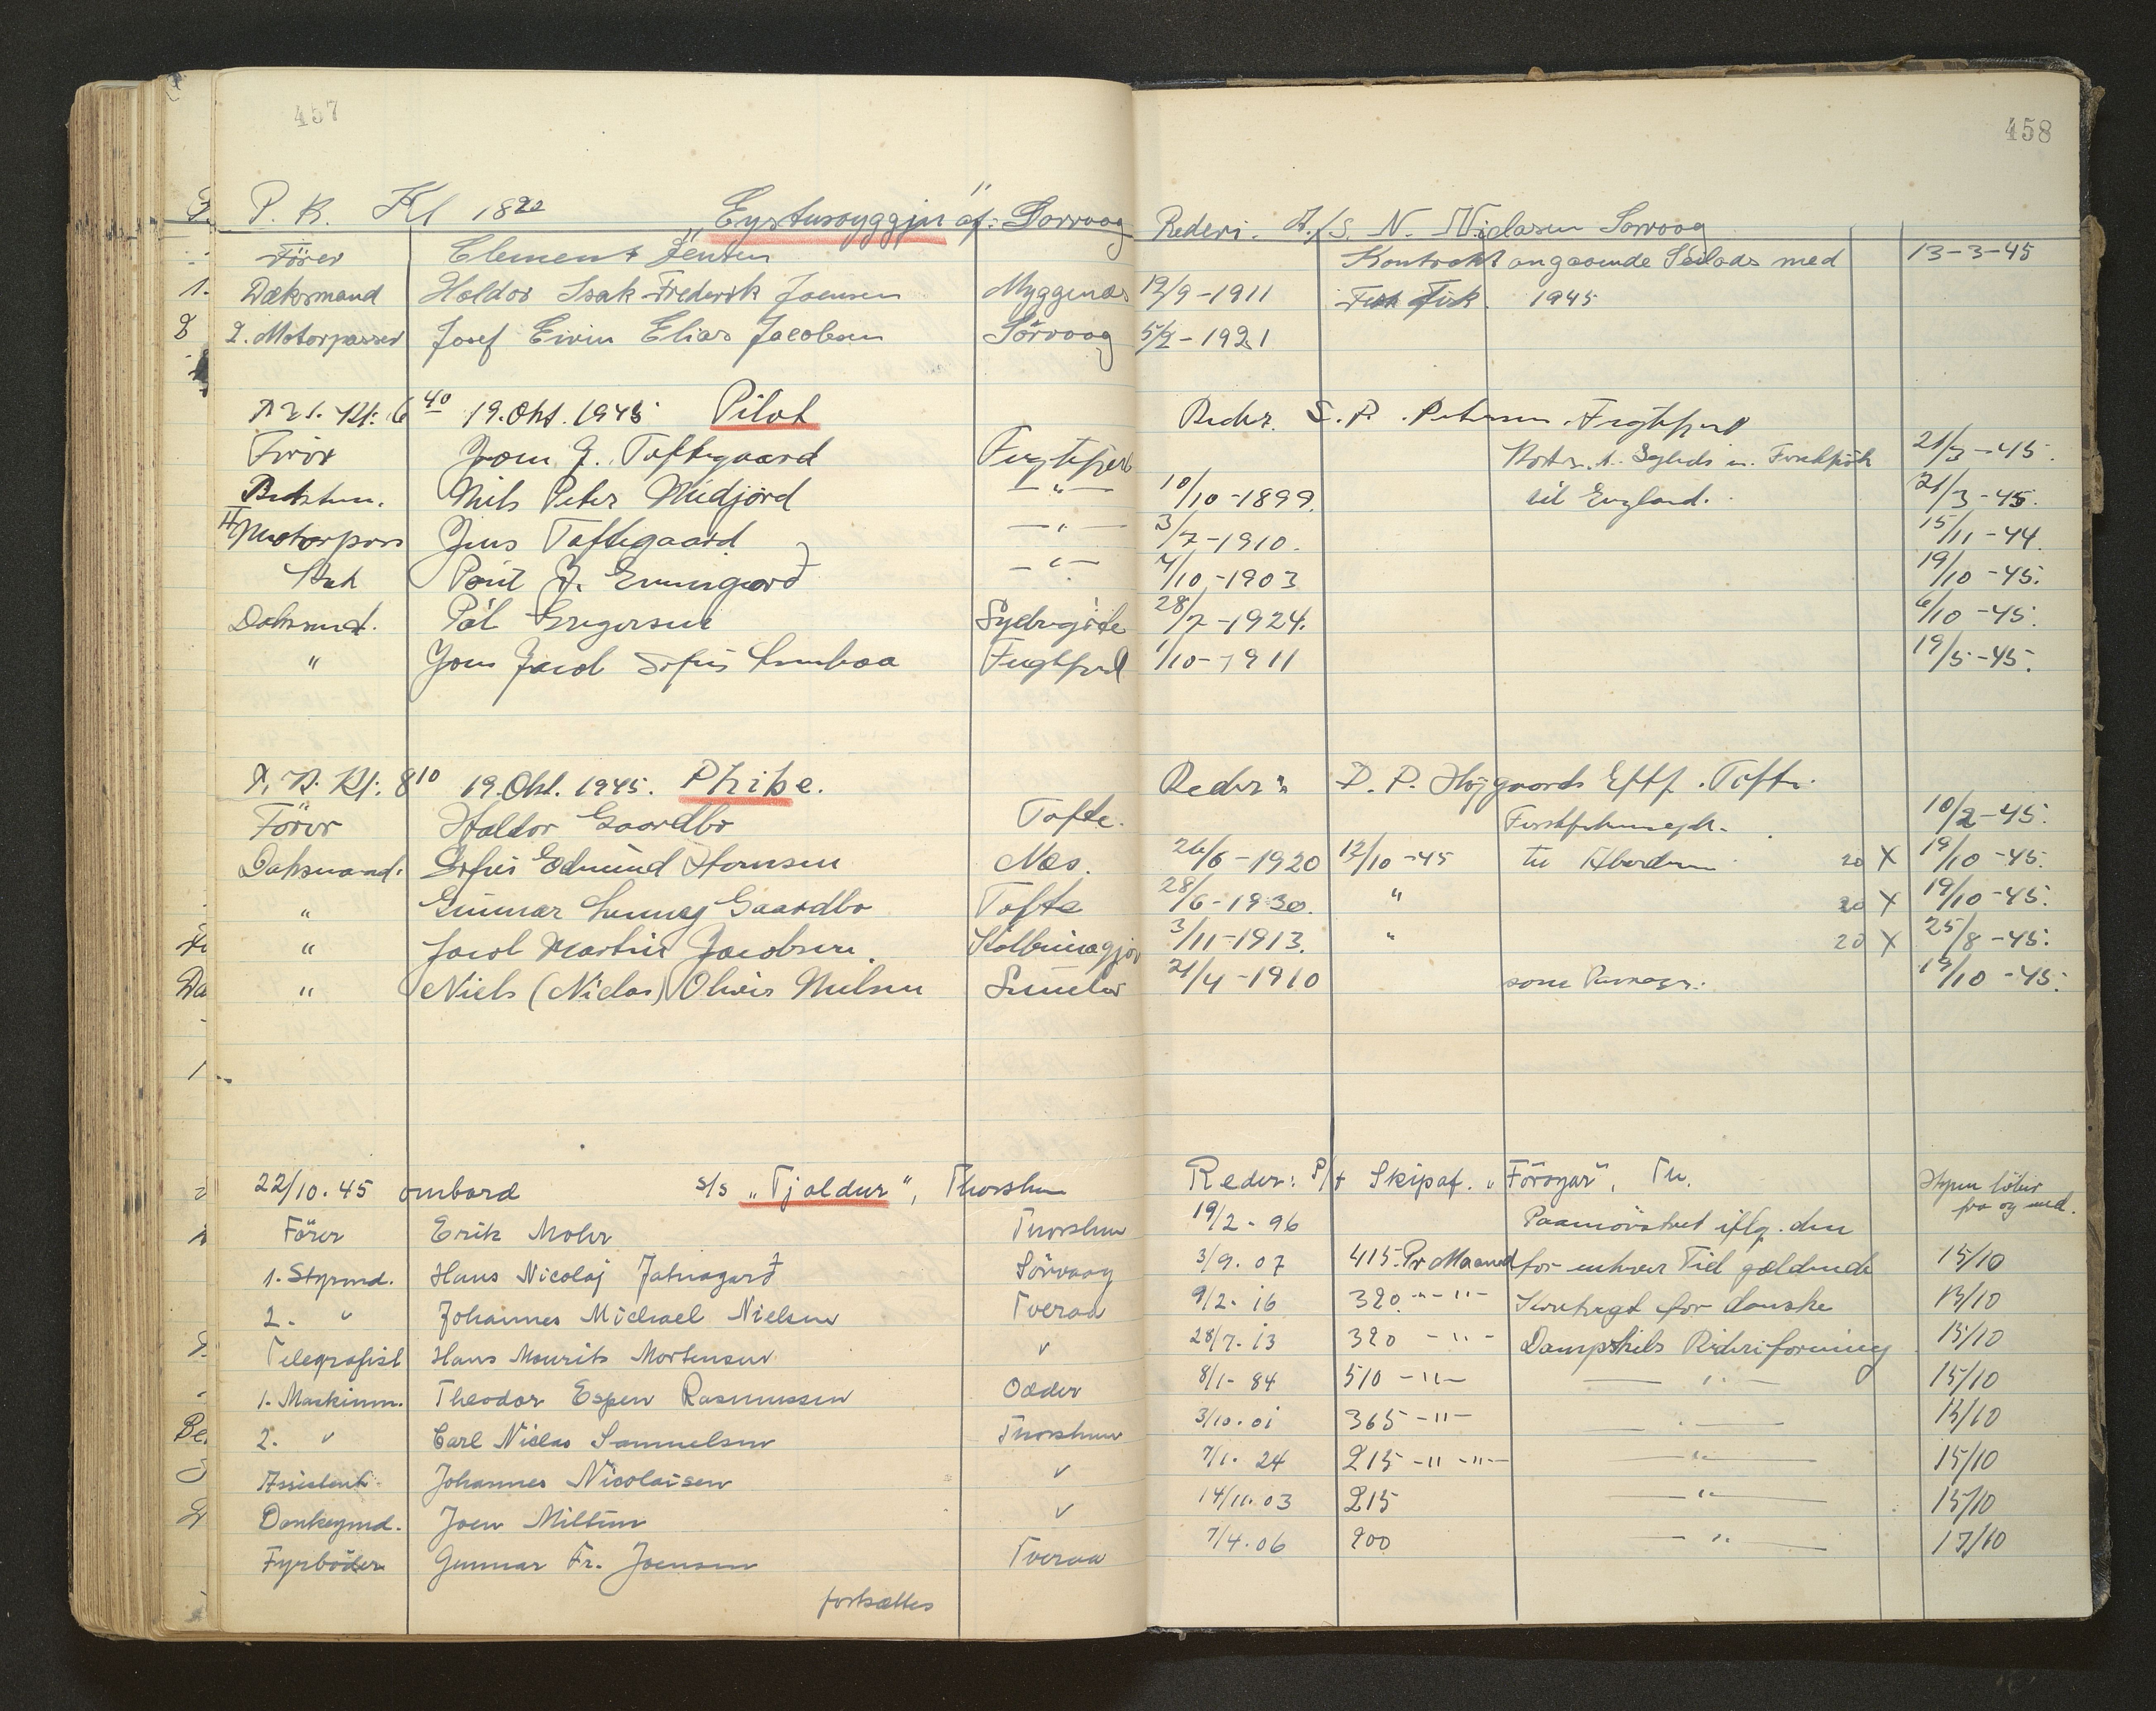 457
458
P. K. Kl 18 20 „Eysturoyggjin" af: Sorvaag Rederi. A/S. N. Niclasen Sorvaag
Förer Clement Jensen Kontrakt angaaende Seilads med 13-3-45
Dæksmand Haldor Isak Frederik Joensen Myggenæs 12/9-1911 Fisk 1945
2. Motorpasser Josef Eivin Elias Jacobsen Sörvaag 5/2-1921
Kl: 6 40 19. Okt. 1945 Pilot Reder. S. P. Petersen. Fuglefjord
Förer Joen J. Toftegaard Fuglefjord 21/3-45.
Bestm. Niels Peter Midjord —"— 10/10-1899. til England. 21/3-45.
II Motorpass Jens Toftegaard —"— 3/7-1910. 15/11-44.
Kok —"— 4/10-1903 19/10-45.
Dæksmd. Pól Gregersen Sydrugöte 28/7-1924. 6/10-45.
" Joen Jacob Sofus Lambaa Fuglefjord 1/10-1911 19/5-45.
Kl: 8 10 19. Okt. 1945. Phibe. Reder: D. P. Højgaards Eftf. Tofte.
Förer Haldor Gaardbo Tofte. 10/2-45.
Dæksmand. Sofus Edmund Thomsen Næs. 26/6-1920 12/10-45 til Aberdeen 20 X 19/10-45.
" Gunnar Gaardbo Tofte 28/6-1930. " 20 X 19/10-45.
" Jacob Martin Jacobsen. Kolbeinagjov 3/11-1913. " 20 X 25/8-45.
" Niels (Niclas) Oliver Nielsen 21/4-1910 som Passager. 19/10-45.
22/10. 45 ombord s/s „Tjaldur", Thorshvn Reder: P/f Skipaf. „Föroyar", Th. Hyren löber
fra og med.
Förer Erik Mohr Thorshvn 19/2. 96 Paamönstret iflg. den
1. Styrmd. Hans Nicolaj Jatnagard Sörvaag 3/9. 07 415. Pr Maaned for enhver Tid gældende 15/10
2. " Johannes Michael Nielsen Tveraa 9/2. 16 320. -"- Kontrakt for danske 15/10
Telegrafist Hans Mourits Mortensen " 28/7. 13 320 -"- Dampskibs Rederiforening 15/10
1. Maskinm. Theodor Espen Rasmussen Odder 8/1- 84 510 -"- —"— 15/10
2. " Carl Niclas Samuelsen Thorshvn 3/10. 01 365 -"- —"— 15/10
Assistent Johannes Nicolaisen " 7/1. 24 215 -"- —"— 15/10
Donkeymd. Joen Miltun " 14/11. 03 215 —"— 15/10
Fyrböder Gunnar Fr. Joensen Tveraa 7/4. 06 200 —"— 17/10
fortsættes